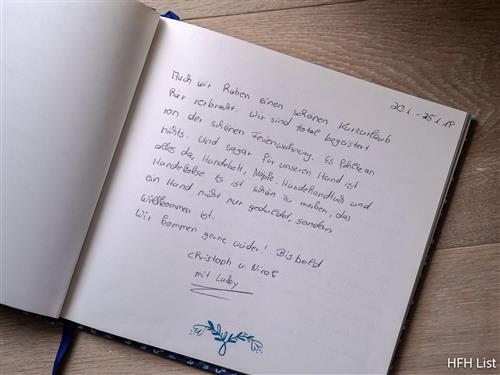 20.1 - 25.1.19
Auch wir haben einen schönen Kurzurlaub
hier verbracht. Wir sind total begeistert
von der schönen Ferienwohnung. Es fehlte an
nichts. Und sogar für unseren Hund ist
alles da, Hundebett, Näpfe, Hundehandtuch und
Hundekekse Es ist schön zu merken, das
ein Hund nicht nur geduldet, sondern
Willkommen ist.
Wir kommen gerne wieder! Bis bald
Christoph u. Nicole
mit
HFH List